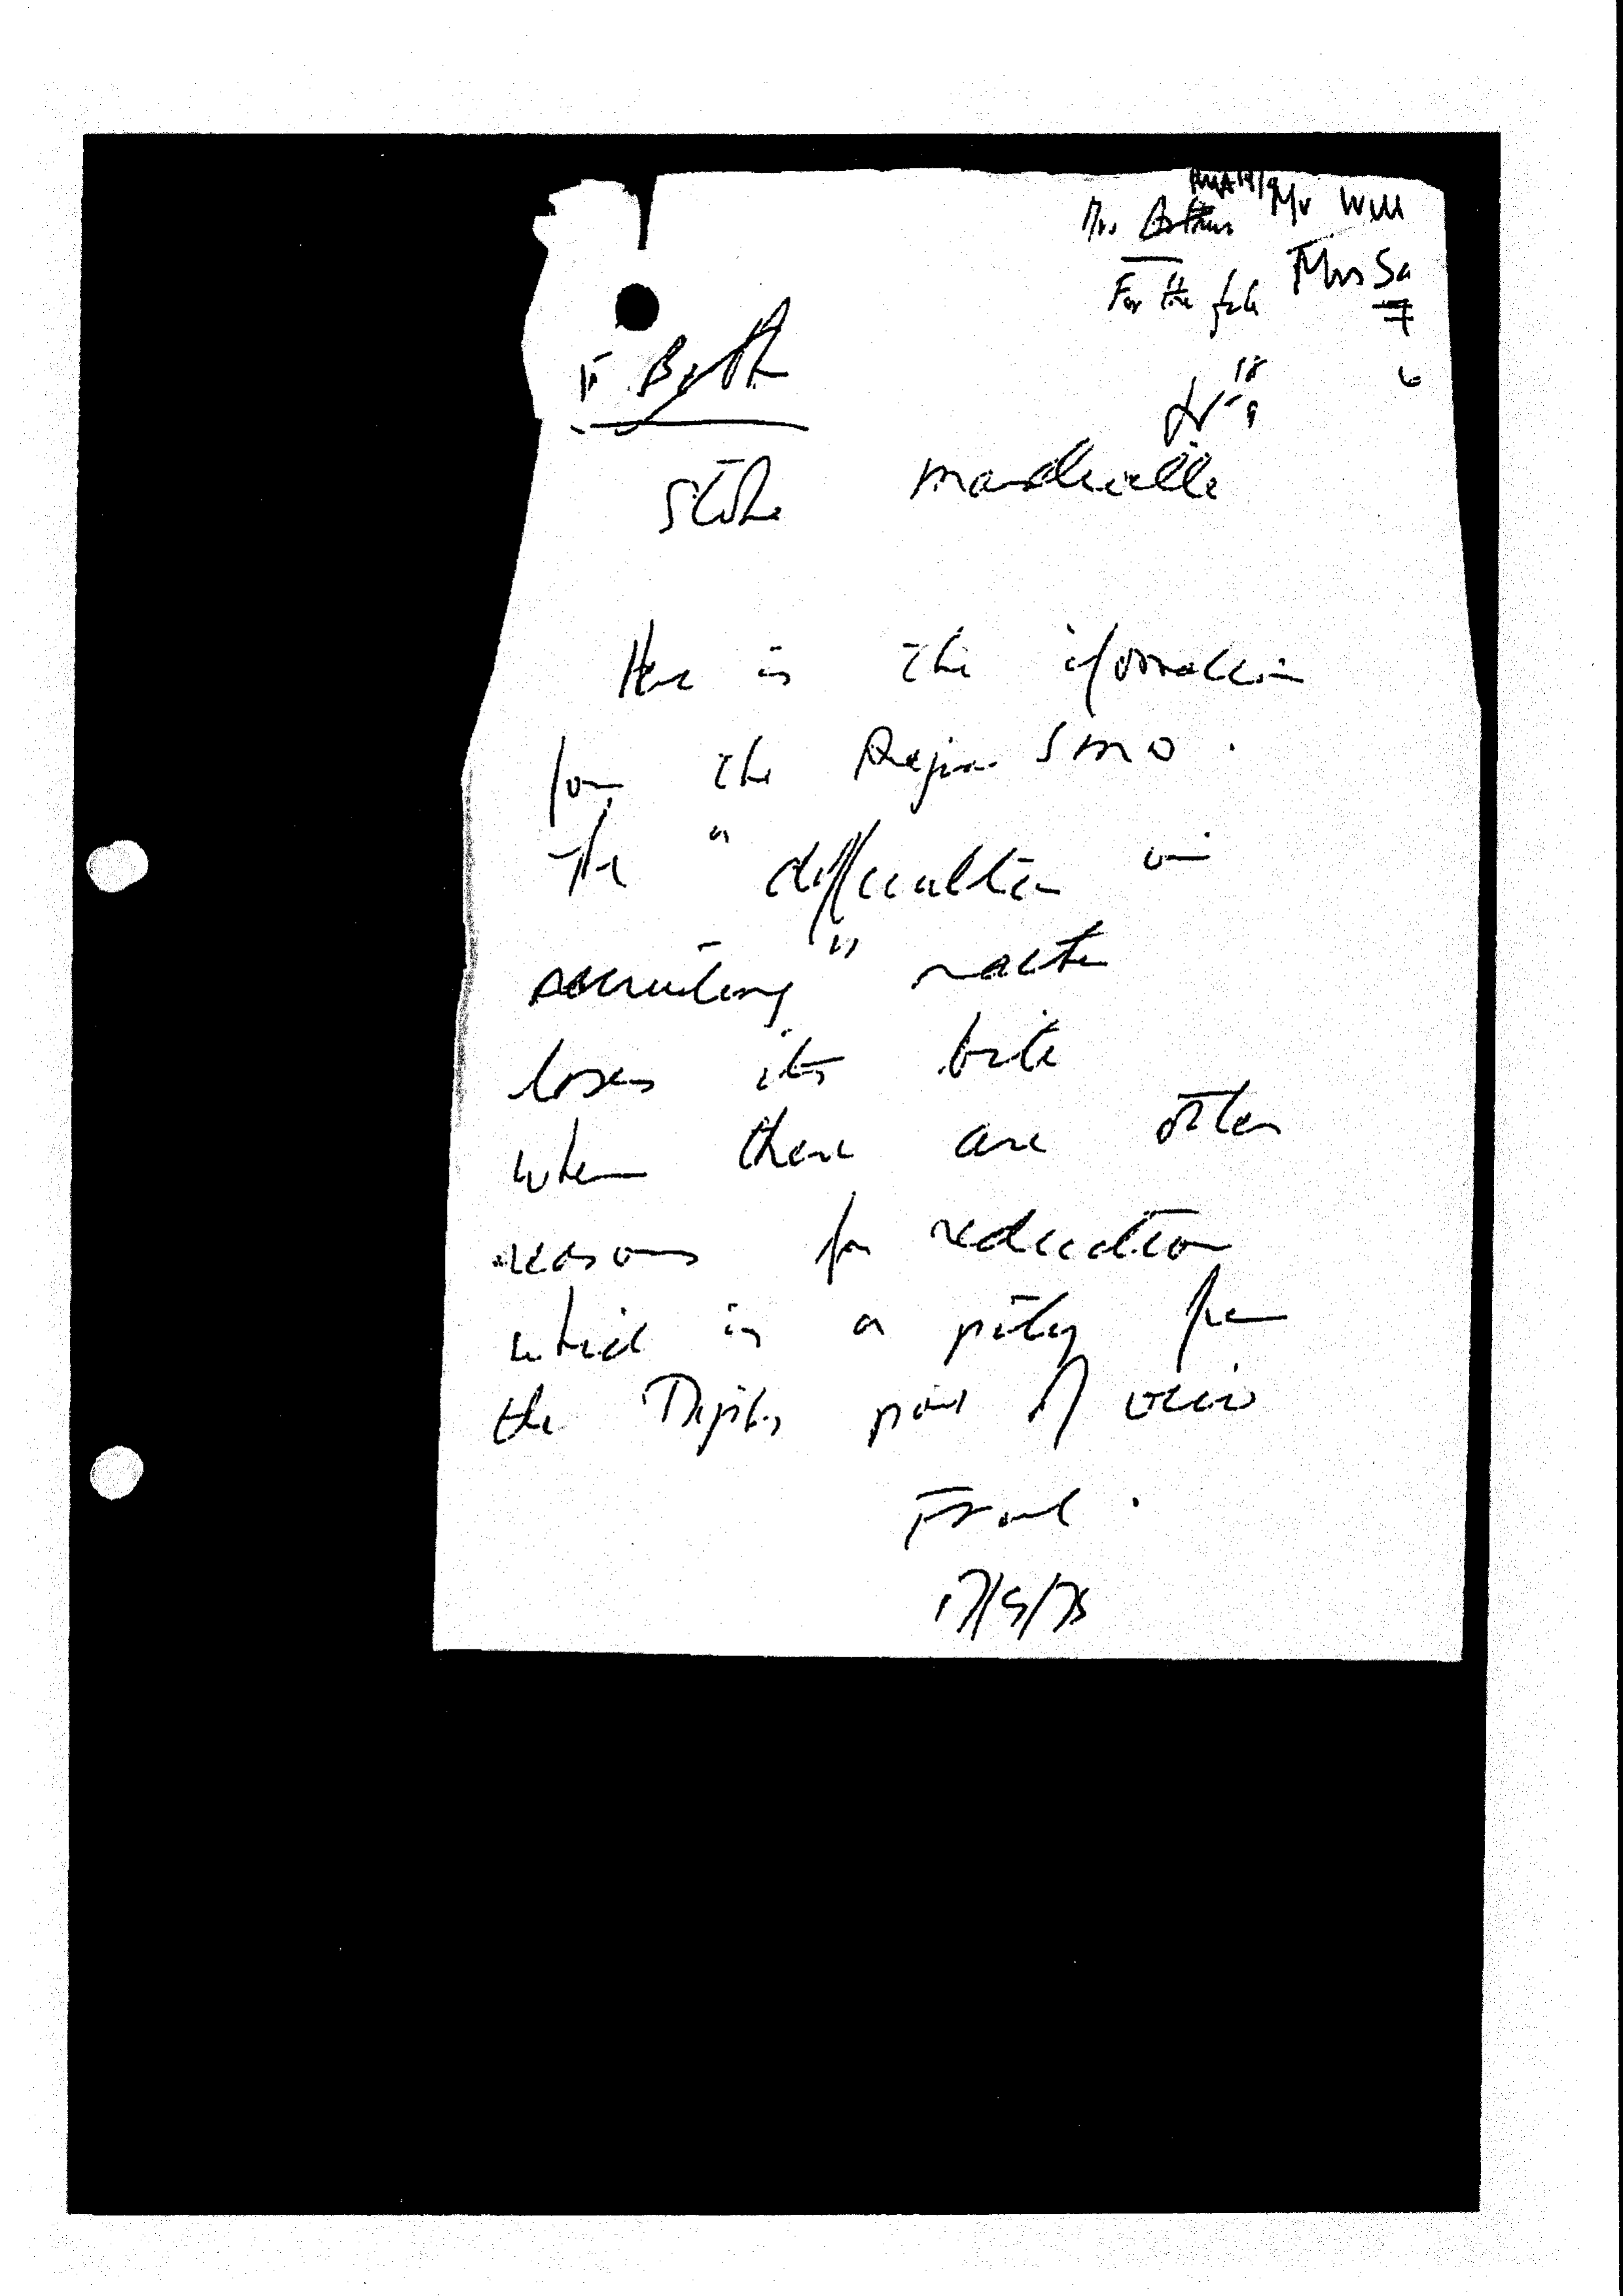 Mr Will
Mrs Arthur
Mrs Sa
For the file
18
9
Stoke Mandeville
Here is the information
from the Region SMO.
The "difficulties in
recruiting" matter
loses its bite
when there are other
reasons for reduction
which is a pity from
the Deputy point of view
17/9/75